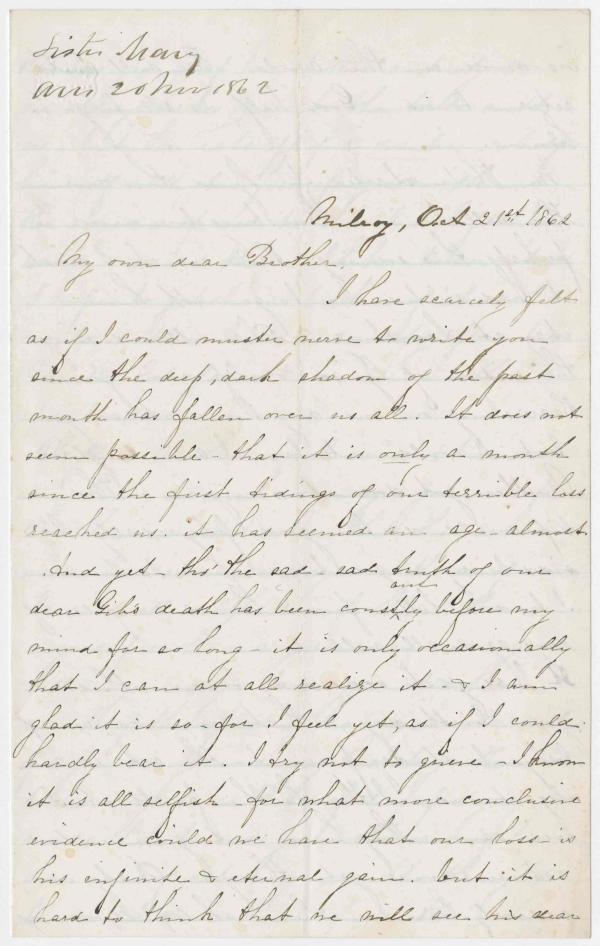 Sister Mary
Ans 20 Nov 1862
Milroy, Oct 21st 1862
My own dear Brother,
I have scarcely felt
as if I could muster nerve to write you
since the deep, dark shadow of the past
month has fallen over us all. It does not
seem possible - that it is only a month
since the first tidings of our terrible loss
reached us. it has seemed an age - almost
And yet - tho' the sad - sad truth of our
dear Gib's death has been constantly before my
mind for so long - it is only occasionally
that I can at all realize it - & I am
glad it is so - for I feel yet, as if I could
hardly bear it. I try not to grieve - I know
it is all selfish - for what more conclusive
evidence could we have that our loss is
his infinite & eternal gain. but it is
hard to think that we will see his dear